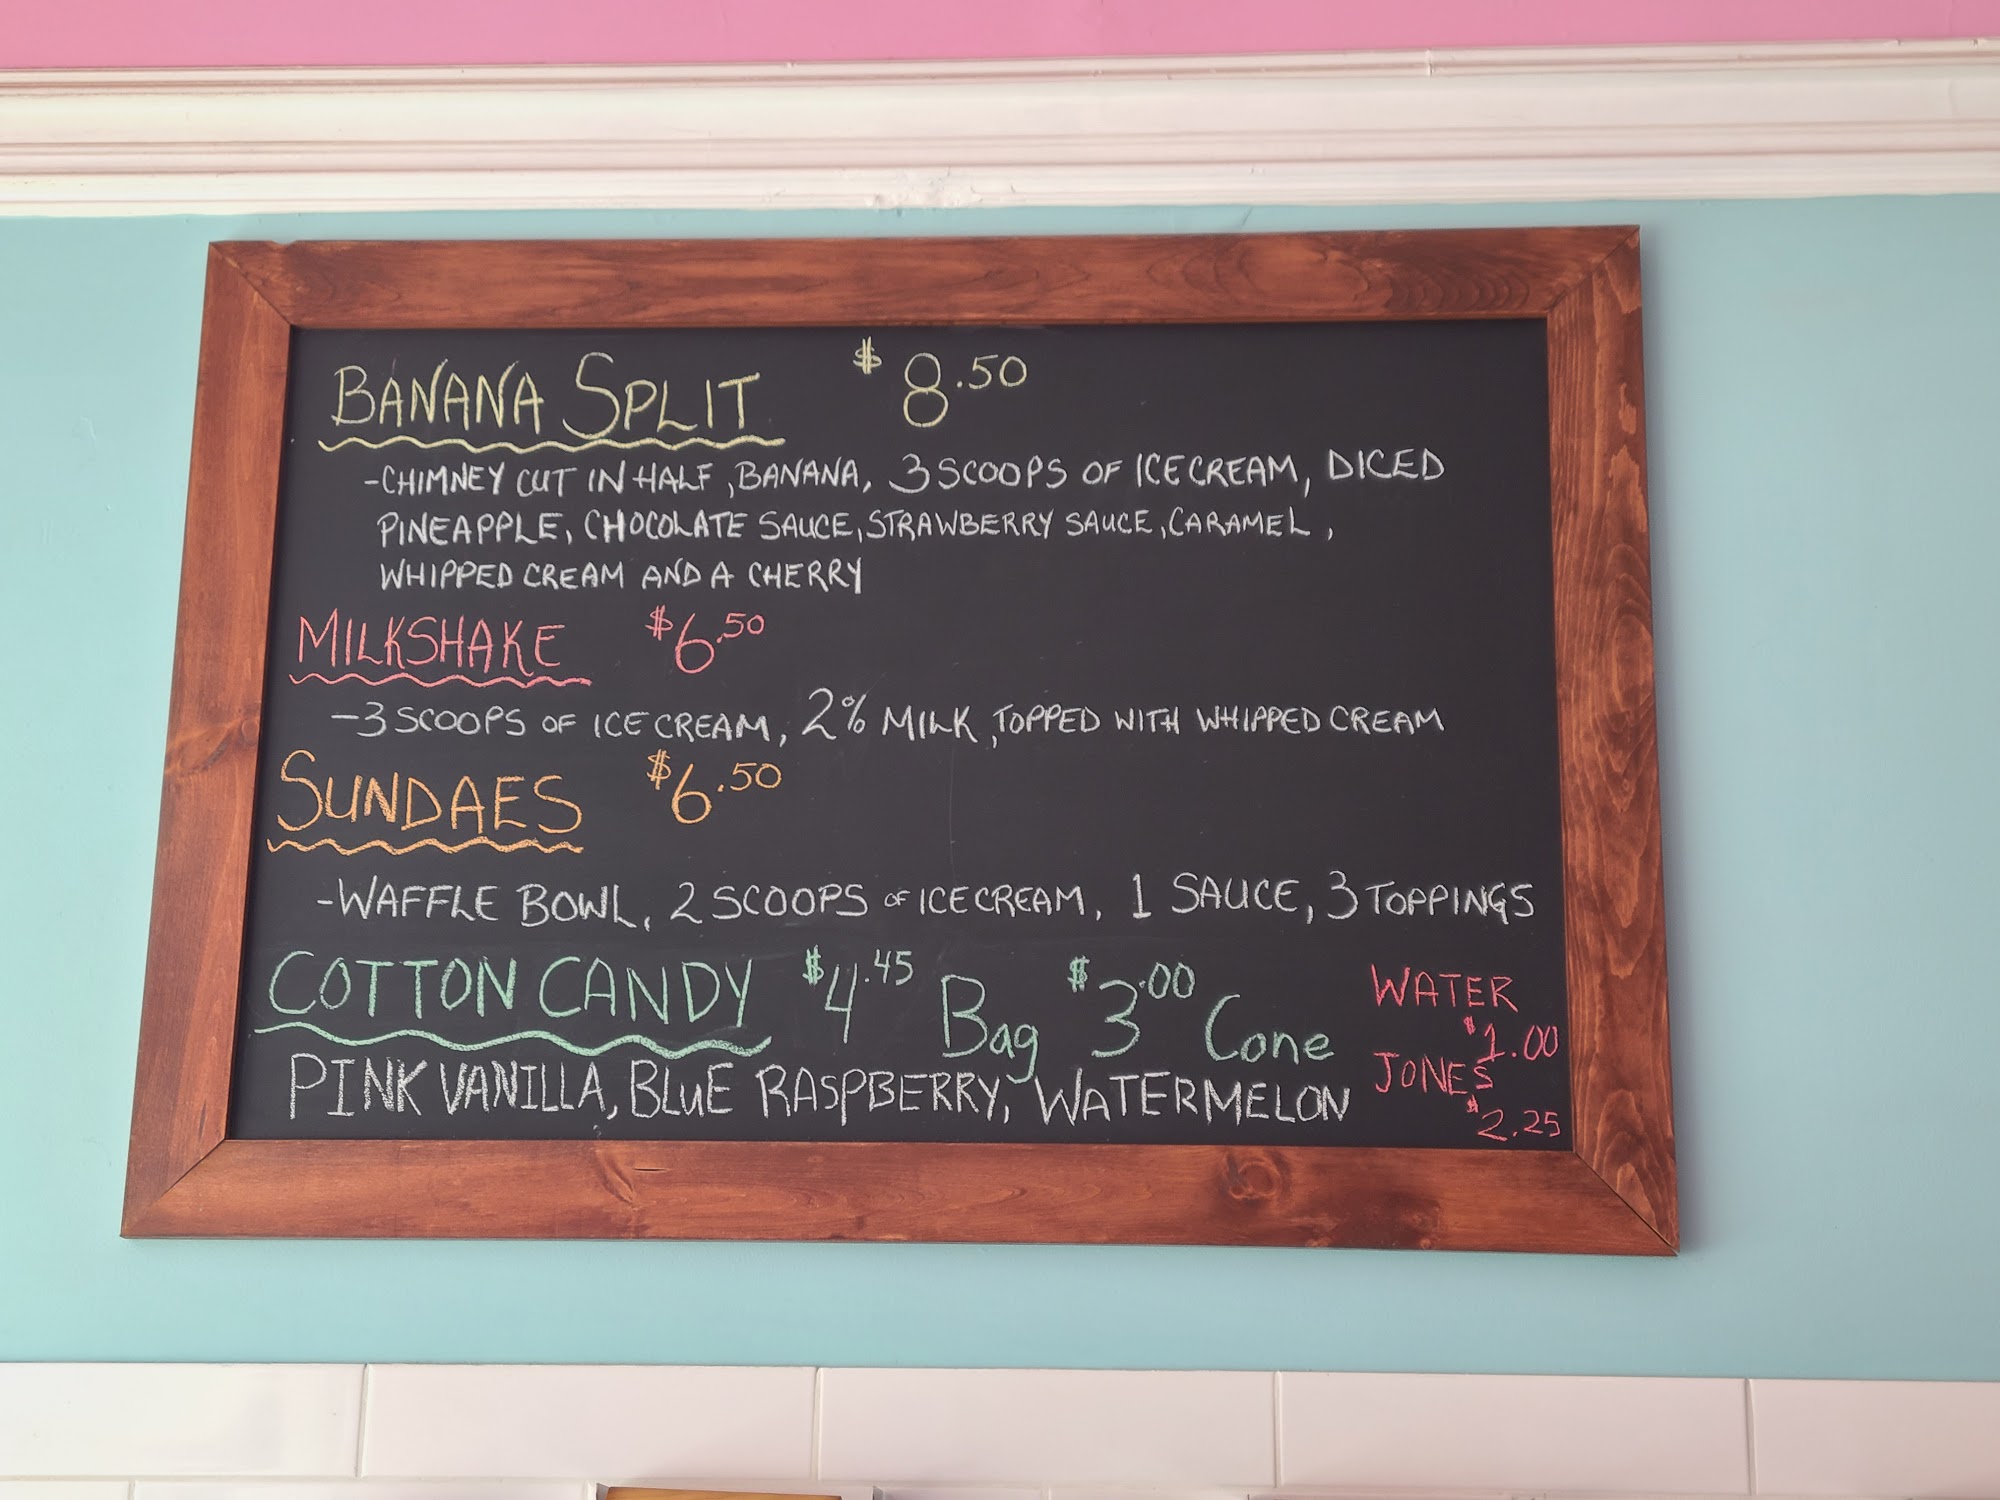 BANANA SPLIT $8.50
-CHIMNEY CUT IN HALF, BANANA, 3 SCOOPS OF ICE CREAM, DICED
PINEAPPLE, CHOCOLATE SAUCE, STRAWBERRY SAUCE, CARAMEL,
WHIPPED CREAM AND A CHERRY
MILKSHAKE $6.50
-3 SCOOPS OF ICE CREAM, 2% MILK, TOPPED WITH WHIPPED CREAM
SUNDAES $6.50
-WAFFLE BOWL, 2 SCOOPS OF ICE CREAM, 1 SAUCE, 3 TOPPINGS
COTTON CANDY $4.45 Bag $3.00 Cone
PINK VANILLA, BLUE RASPBERRY, WATERMELON
WATER
$1.00
JONES
$2.25